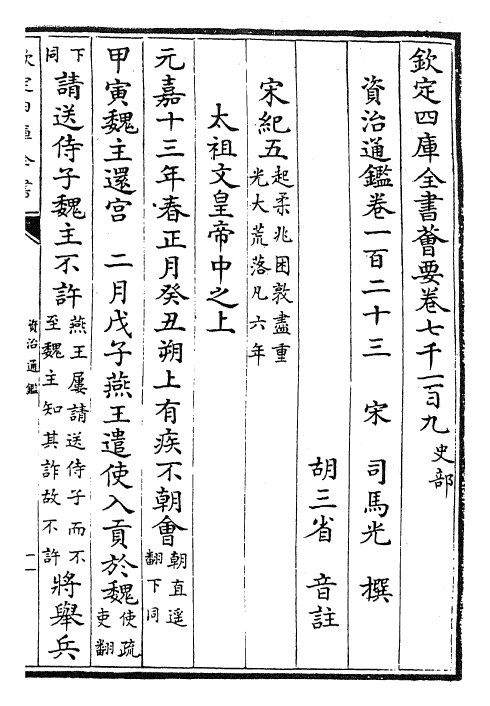 欽定四庫全書薈要卷七千一百九 史部
資治通鑑卷一百二十三 宋 司馬光 撰
胡三省 音註
宋紀五 起柔兆困敦盡重光大荒落凡六年
太祖文皇帝中之上
元嘉十三年春正月癸丑朔上有疾不朝會 朝直遥翻下同
甲寅魏主還宮 二月戊子燕王遣使入貢於魏 使疏吏翻
下同 請送侍子魏主不許 燕王屢請送侍子而不至魏主知其詐故不許 將舉兵
欽定四庫全書
資治通鑑
一